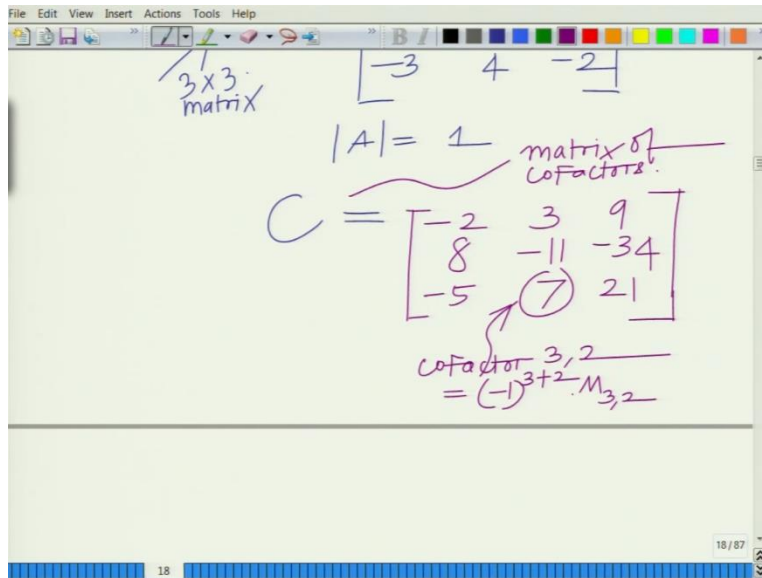 File Edit View Insert Actions Tools Help
B I
3×3
matrix
-3 4 -2
|A| = 1
matrix of
cofactors.
C =
-2 3 9
8 -11 -34
-5 7 21
cofactor 3,2
= (-1)^3+2 . M3,2
18/87
18